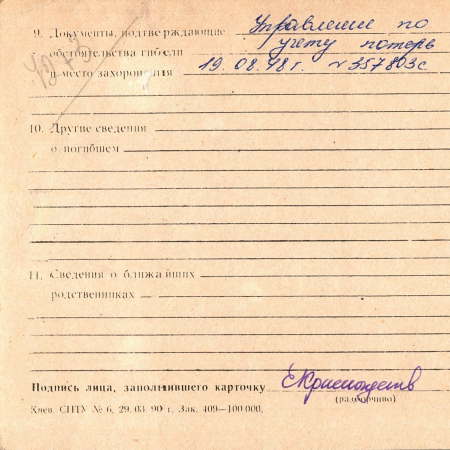 9. Документы, подтверждающие Управление по
обстоятельства гибели учету потерь
и место захоронения 19.08.48 г. №357803с
10. Другие сведения
о погибшем
11. Сведения о ближайших
родственниках
Подпись лица, заполнившего карточку
(разборчиво)
Киев. СПТУ № 6, 29. 03. 90 г. Зак. 409—100 000.